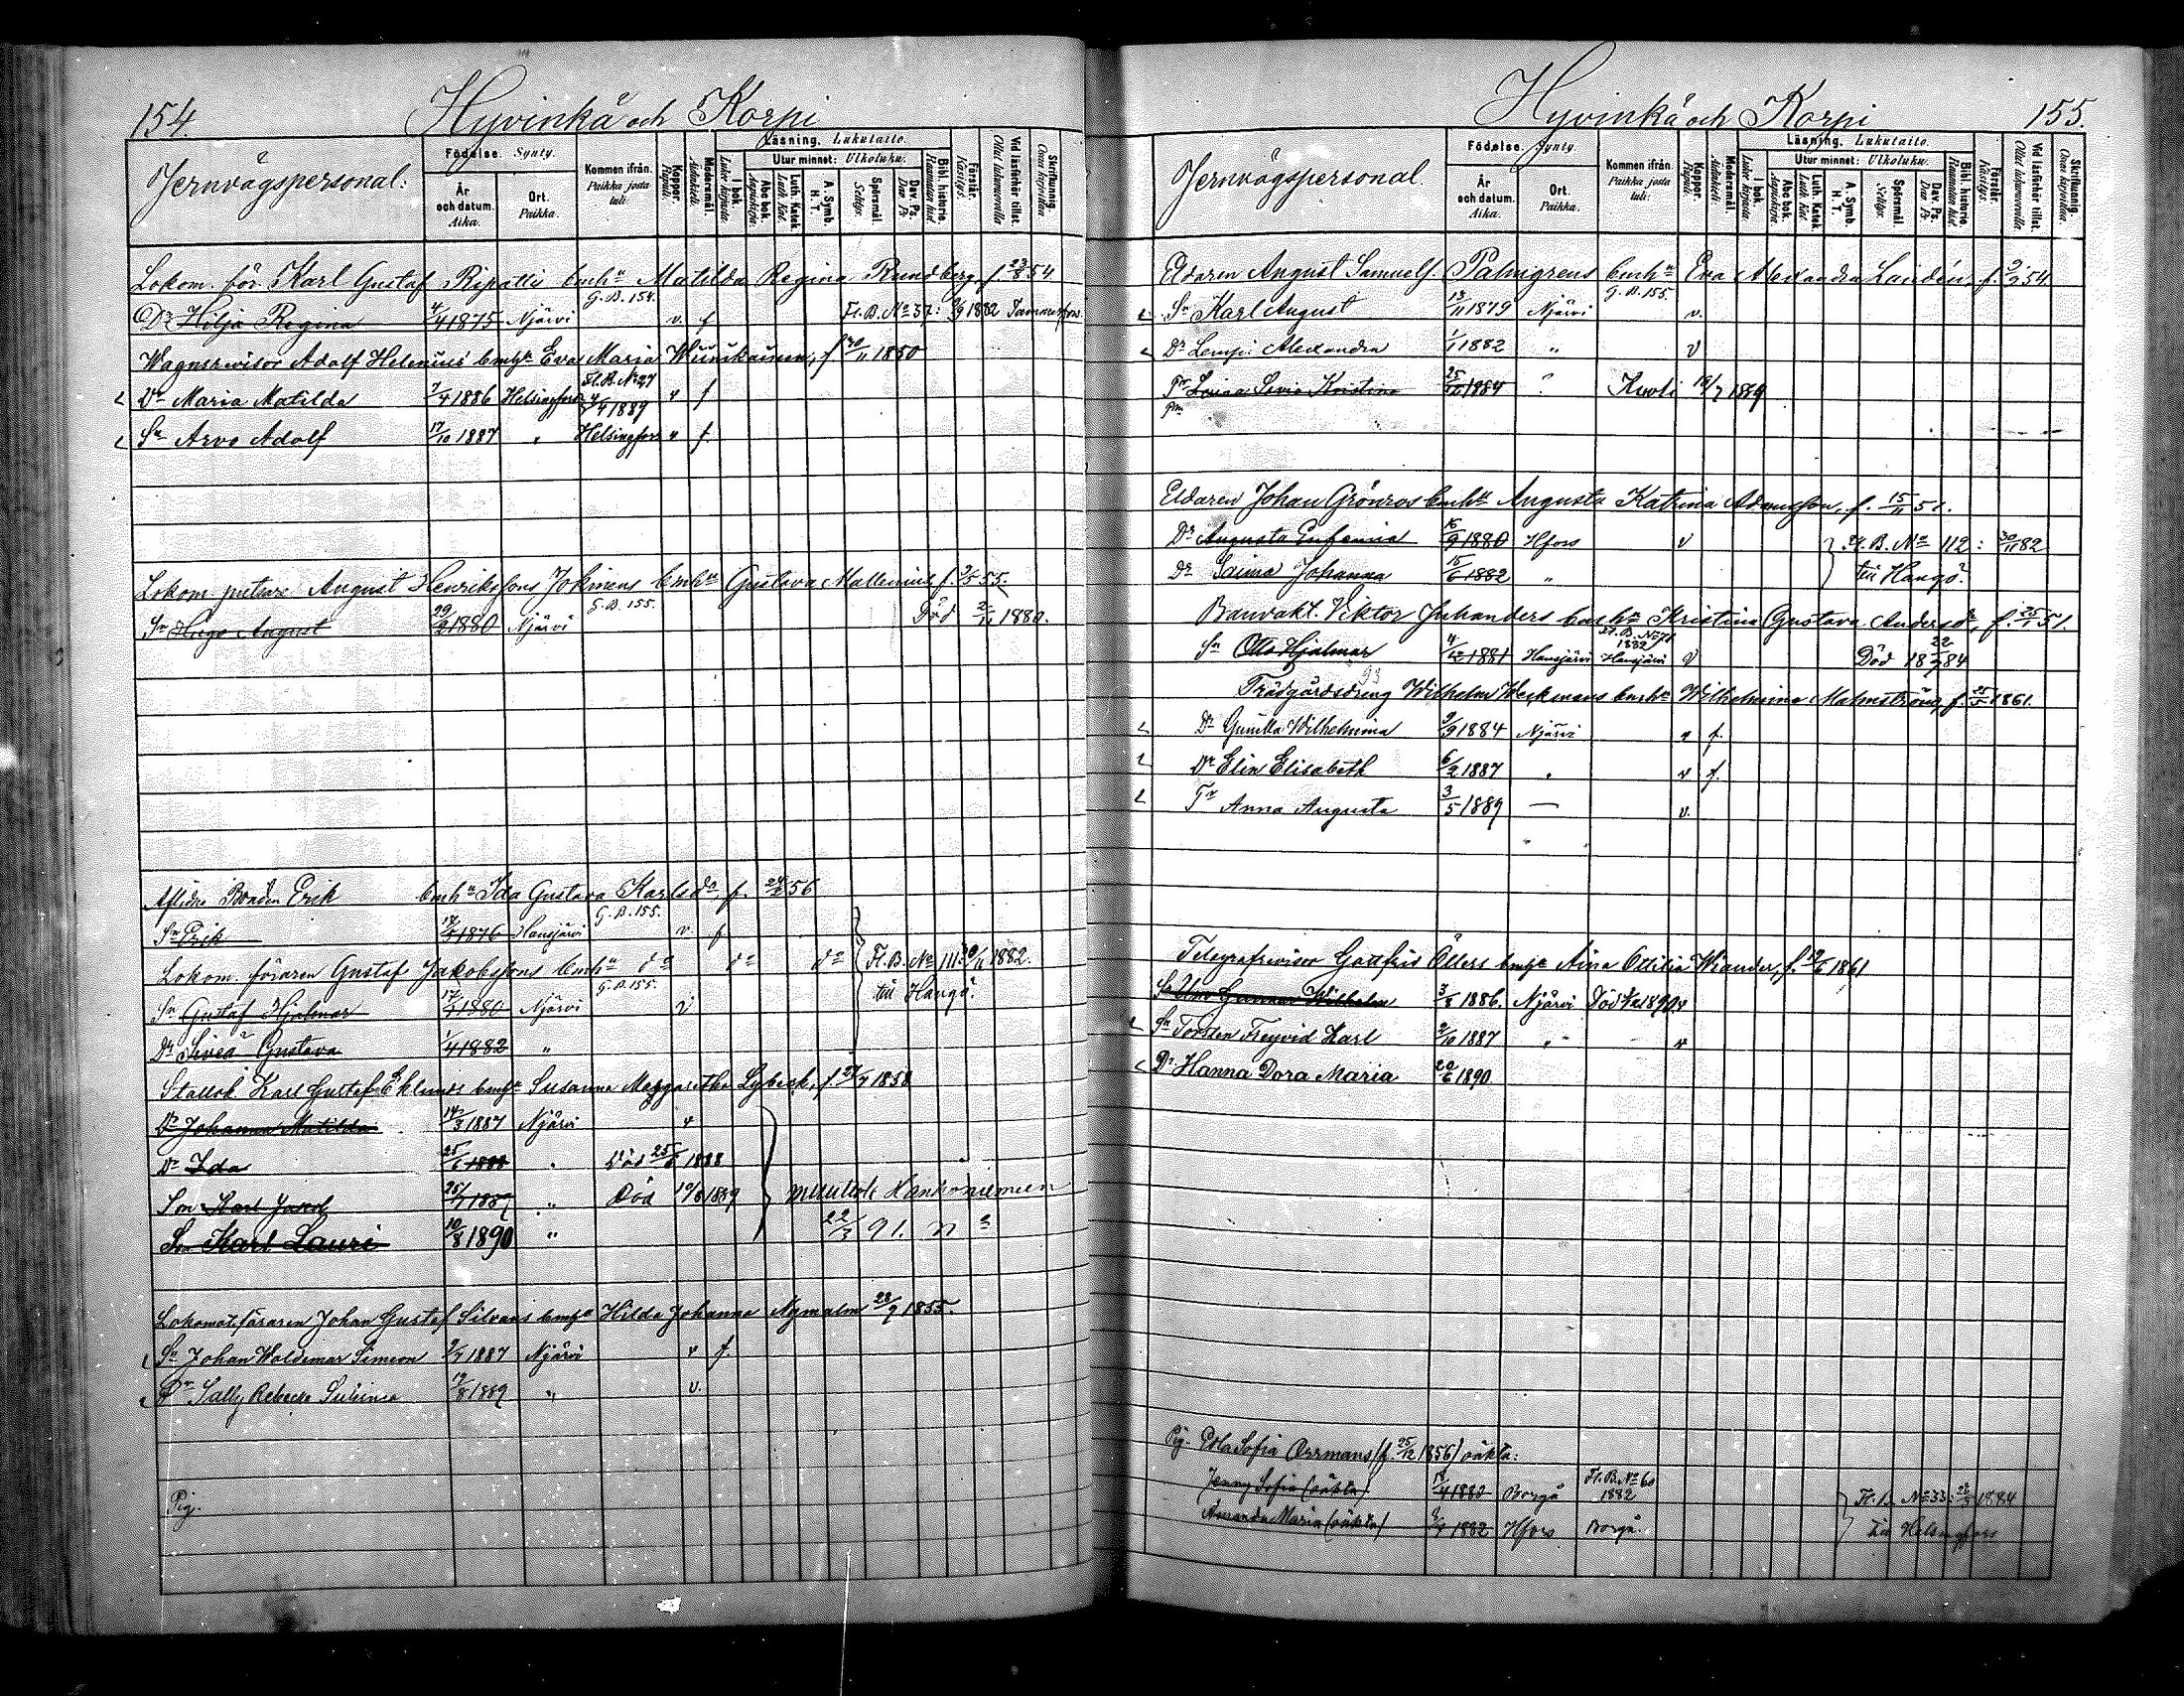 154.
Hyvinkä och Korpi
Jernvägspersonal:
Födelse. Synty.
År och datum. Aika.
Ort. Paikka.
Kommen ifrån. Paikka josta tuli.
Koppor. Rupuli.
Modersmål. Äidinkieli.
Läsning. Lukutaito.
I bok. Luku kirjasta
Utur minnet: Ulkoluku.
Abc bok. Aapiskirja.
Luth. Katek. Luth. Kat.
A. Symb. H. T.
Spörsmål. Selitys.
Dav. Ps. Dav. Ps.
Bibl. historie. Raamatun hist.
Förstår. Käsitys.
Vid läsförhör tillst. Ollut lukuvuorolla
Skrifkunnig. Osaa kirjoittaa
Lokom. för. Karl Gustaf Ripatti bmhu Matilda Regina Rundberg, f. 23/8 54
Dr Hilja Regina 4/4 1875 Njärvi G. B. 154. v. f Fl. B. No 37: 9/9 1882 Tammerfors
Wagnsrevisor Adolf Helenius' bmhu Eva Maria Wuinikainen, f 30/11 1850
Dr Maria Matilda 7/4 1886 Helsingfors Fl. B. No 27 4/4 1889 v f
Sn Arvo Adolf 17/10 1887 " Helsingfors v f
Lokom. putsare August Henrikssons Jokinens bmhu Gustava Mallenius f. 9/5 55.
Sn Hugo August 29/2 1880 Njärvi G. B. 155. Död 2/11 1880.
Aflidne Bonden Erik bmhu Ida Gustava Karlsdr, f. 24/2 56
Sn Erik 18/5 1876 Hausjärvi G. B. 155. v. f
Lokom. föraren Gustaf Jakobssons bmhu do do do Fl. B. No 111: 30/11 1882.
Sn Gustaf Hjalmar 17/4 1880 Njärvi G. B. 155. v till Hangö.
Dr Sivea Gustava 1/4 1882 "
Stallck. Karl Gustaf Eklunds bmhu Susanna Margaretha Lybeck, f. 27/7 1858
Dr Johanna Matilda 14/3 1887 Njärvi v
Dr Ida 25/6 1888 " Död 25/6 1888
Son Karl Jakob 25/7 1889 " Död 10/8 1889 Hankoniemeen
Son Karl Lauri 10/8 1890 " 22/3 91. n
Lokomot. föraren Johan Gustaf Silvans bmhu Hilda Johanna Nymalm 28/9 1855.
Sn Johan Waldemar Simeon 9/7 1887 Njärvi v f.
Dr Sally Rebecka Sulima 19/8 1889 " v.
Pig.
Hyvinkä och Korpi
155.
Jernvägspersonal.
Födelse. Synty.
År och datum. Aika.
Ort. Paikka.
Kommen ifrån. Paikka josta tuli.
Koppor. Rupuli.
Modersmål. Äidinkieli.
Läsning. Lukutaito.
I bok. Luku kirjasta
Utur minnet: Ulkoluku.
Abc bok. Aapiskirja.
Luth. Katek. Luth. Kat.
A. Symb. H. T.
Spörsmål. Selitys.
Dav. Ps. Dav. Ps.
Bibl. historie. Raamatun hist.
Förstår. Käsitys.
Vid läsförhör tillst. Ollut lukuvuorolla
Skrifkunnig. Osaa kirjoittaa
Eldaren August Samuels. Palmgrens bmhu Eva Alexandra Landén, f. 9/9 54
Sn Karl August 13/11 1879 Njärvi G. B. 155. v.
Dr Lempi Alexandra 1/1 1882 " v
Kristina 25/10 1884 Kuoli 18/7 1889
Eldaren Johan Grönroos bmhu Augusta Katrina Adamsson, f. 15/11 51.
Dr Augusta Eufemia 16/9 1880 Hfors v Fl. B. No 112: 30/11 82
Dr Saima Johanna 15/6 1882 " till Hangö.
Banvakt. Viktor Juhanders bmhu Kristina Gustava Andersdr, f. 25/1 51.
Sn Otto Hjalmar 4/12 1881 Hausjärvi Fl. B. No 71 1882 Hausjärvi v Död 18 22/7 84
93
Trädgårdsdreng Wilhelm Weckmans bmhu Wilhelmina Malmström, f. 25/5 1861.
Dr Gunilla Wilhelmina 9/9 1884 Njärvi v f.
Dr Elin Elisabeth 6/2 1887 " v f.
Tr Anna Augusta 3/5 1889 — v.
Telegrafrevisor Gottfrid Öllers bmhu Aina Ottilia Wiander, f. 10/6 1861
Sn Uno Gunnar Wilhelm 3/3 1886. Njärvi Död 1890 v
Sn Torsten Freyvid Karl 2/10 1887 " v
Dr Hanna Dora Maria 20/6 1890
Pig. Edla Sofia Orrmans (f. 25/12 1856) oäkta:
Jenny Sofia (oäkta) 18/4 1880 Borgå Fl. B. No 60 1882 Fl. B. No 33: 1884
Amanda Maria (oäkta) 1882 Hfors Borgå. till Helsingfors